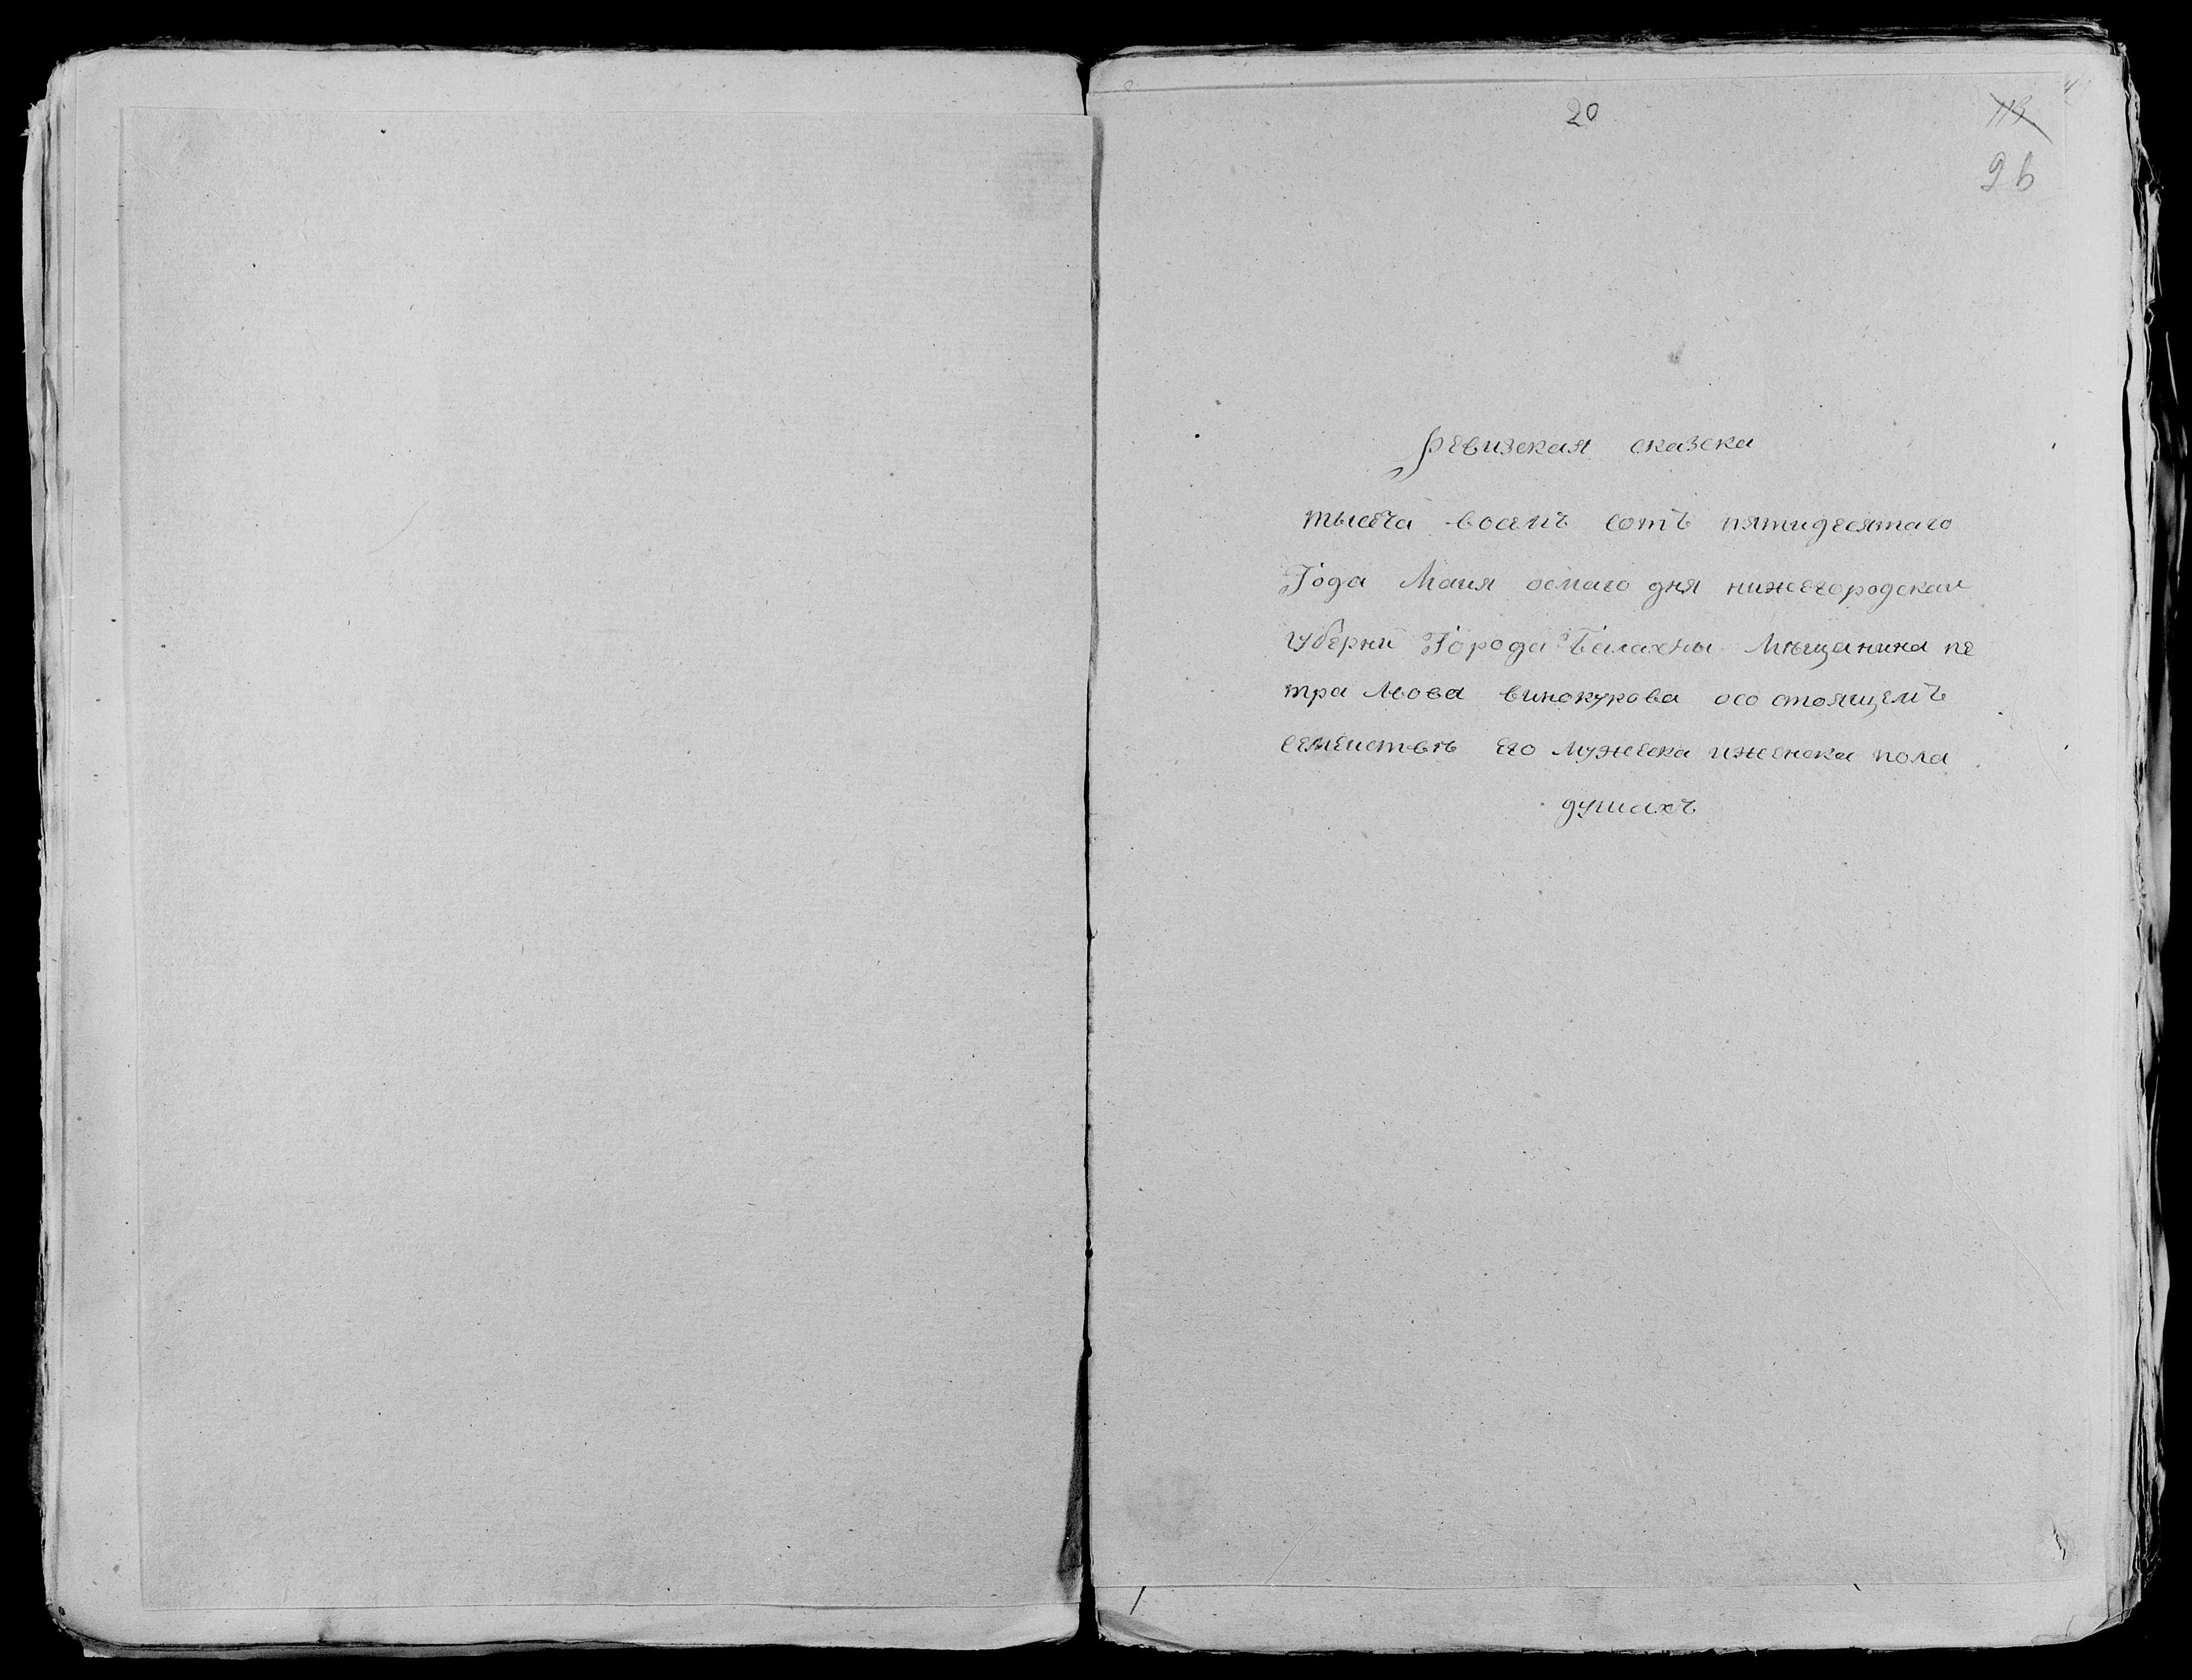 20
113
96
Ревизская сказска
тысеча восемъ сотъ пятидесятаго
Года Маия осмаго дня нижегородскаи
губерни Города Балахны Мѣщанина пе
тра Лвова винокурова осо стоящемъ
семеиствѣ его мужеска иженска пола
душахъ